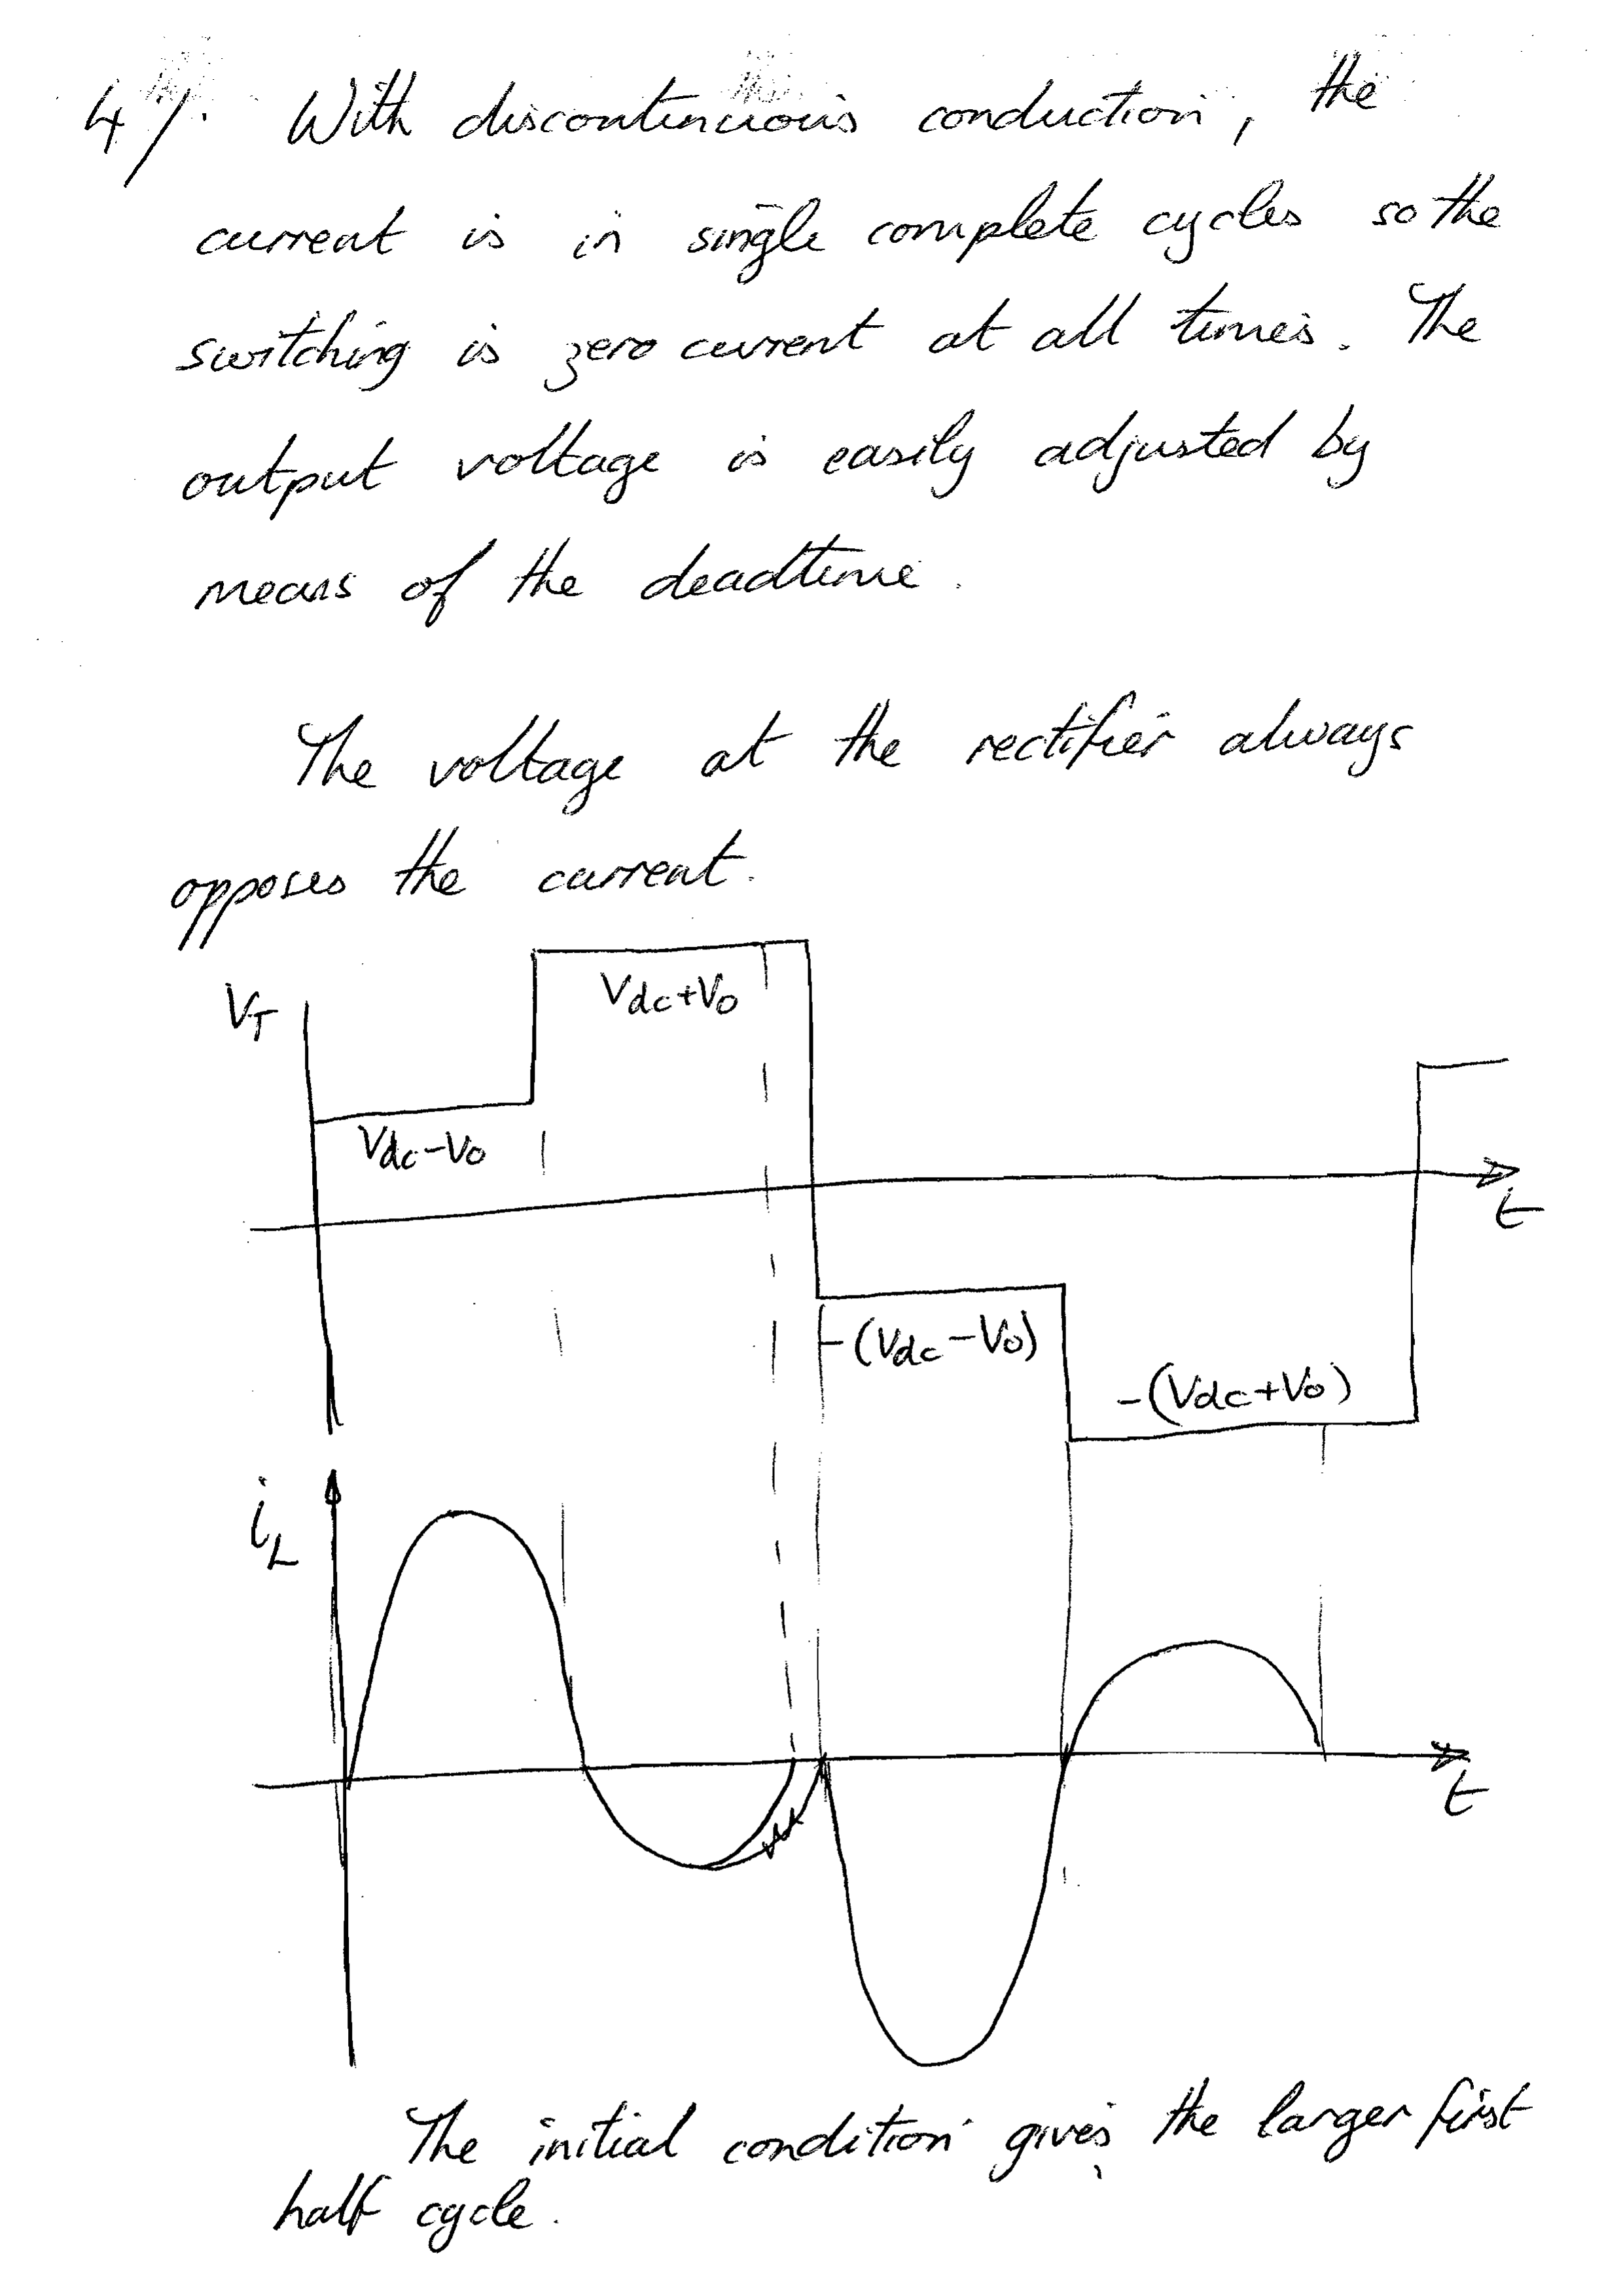 4/. With discontinuous conduction, the
current is in single complete cycles so the
switching is zero current at all times. The
output voltage is easily adjusted by
means of the deadtime.
The voltage at the rectifier always
opposes the current.
VT
Vdc+Vo
Vdc-Vo
t
-(Vdc-Vo)
-(Vdc+Vo)
iL
t
The initial condition gives the larger first
half cycle.